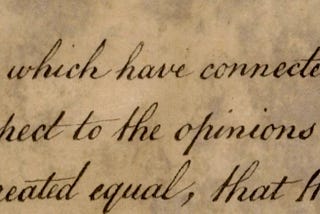 which have connecte
pect to the opinions
reated equal, that th